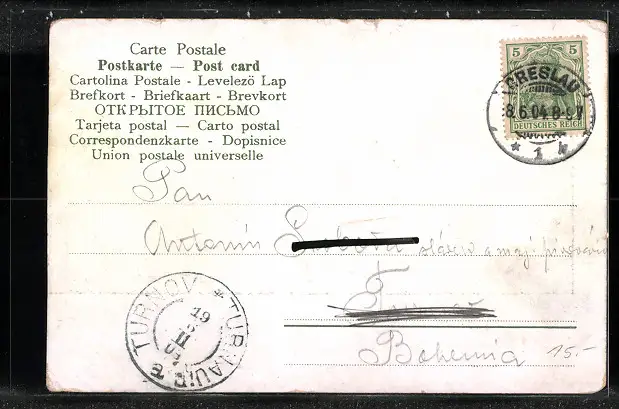 Carte Postale
Postkarte — Post card
Cartolina Postale - Levelezö Lap
Brefkort - Briefkaart - Brevkort
ОТКРЫТОЕ ПИСЬМО
Tarjeta postal — Carto postal
Correspondenzkarte - Dopisnice
Union postale universelle
5 5
DEUTSCHES REICH
BRESLAU
8.6.04.8-9V
* 1 k
Pan
Antonín
Bohemia
15.-
TURNOV * TURNAU
19